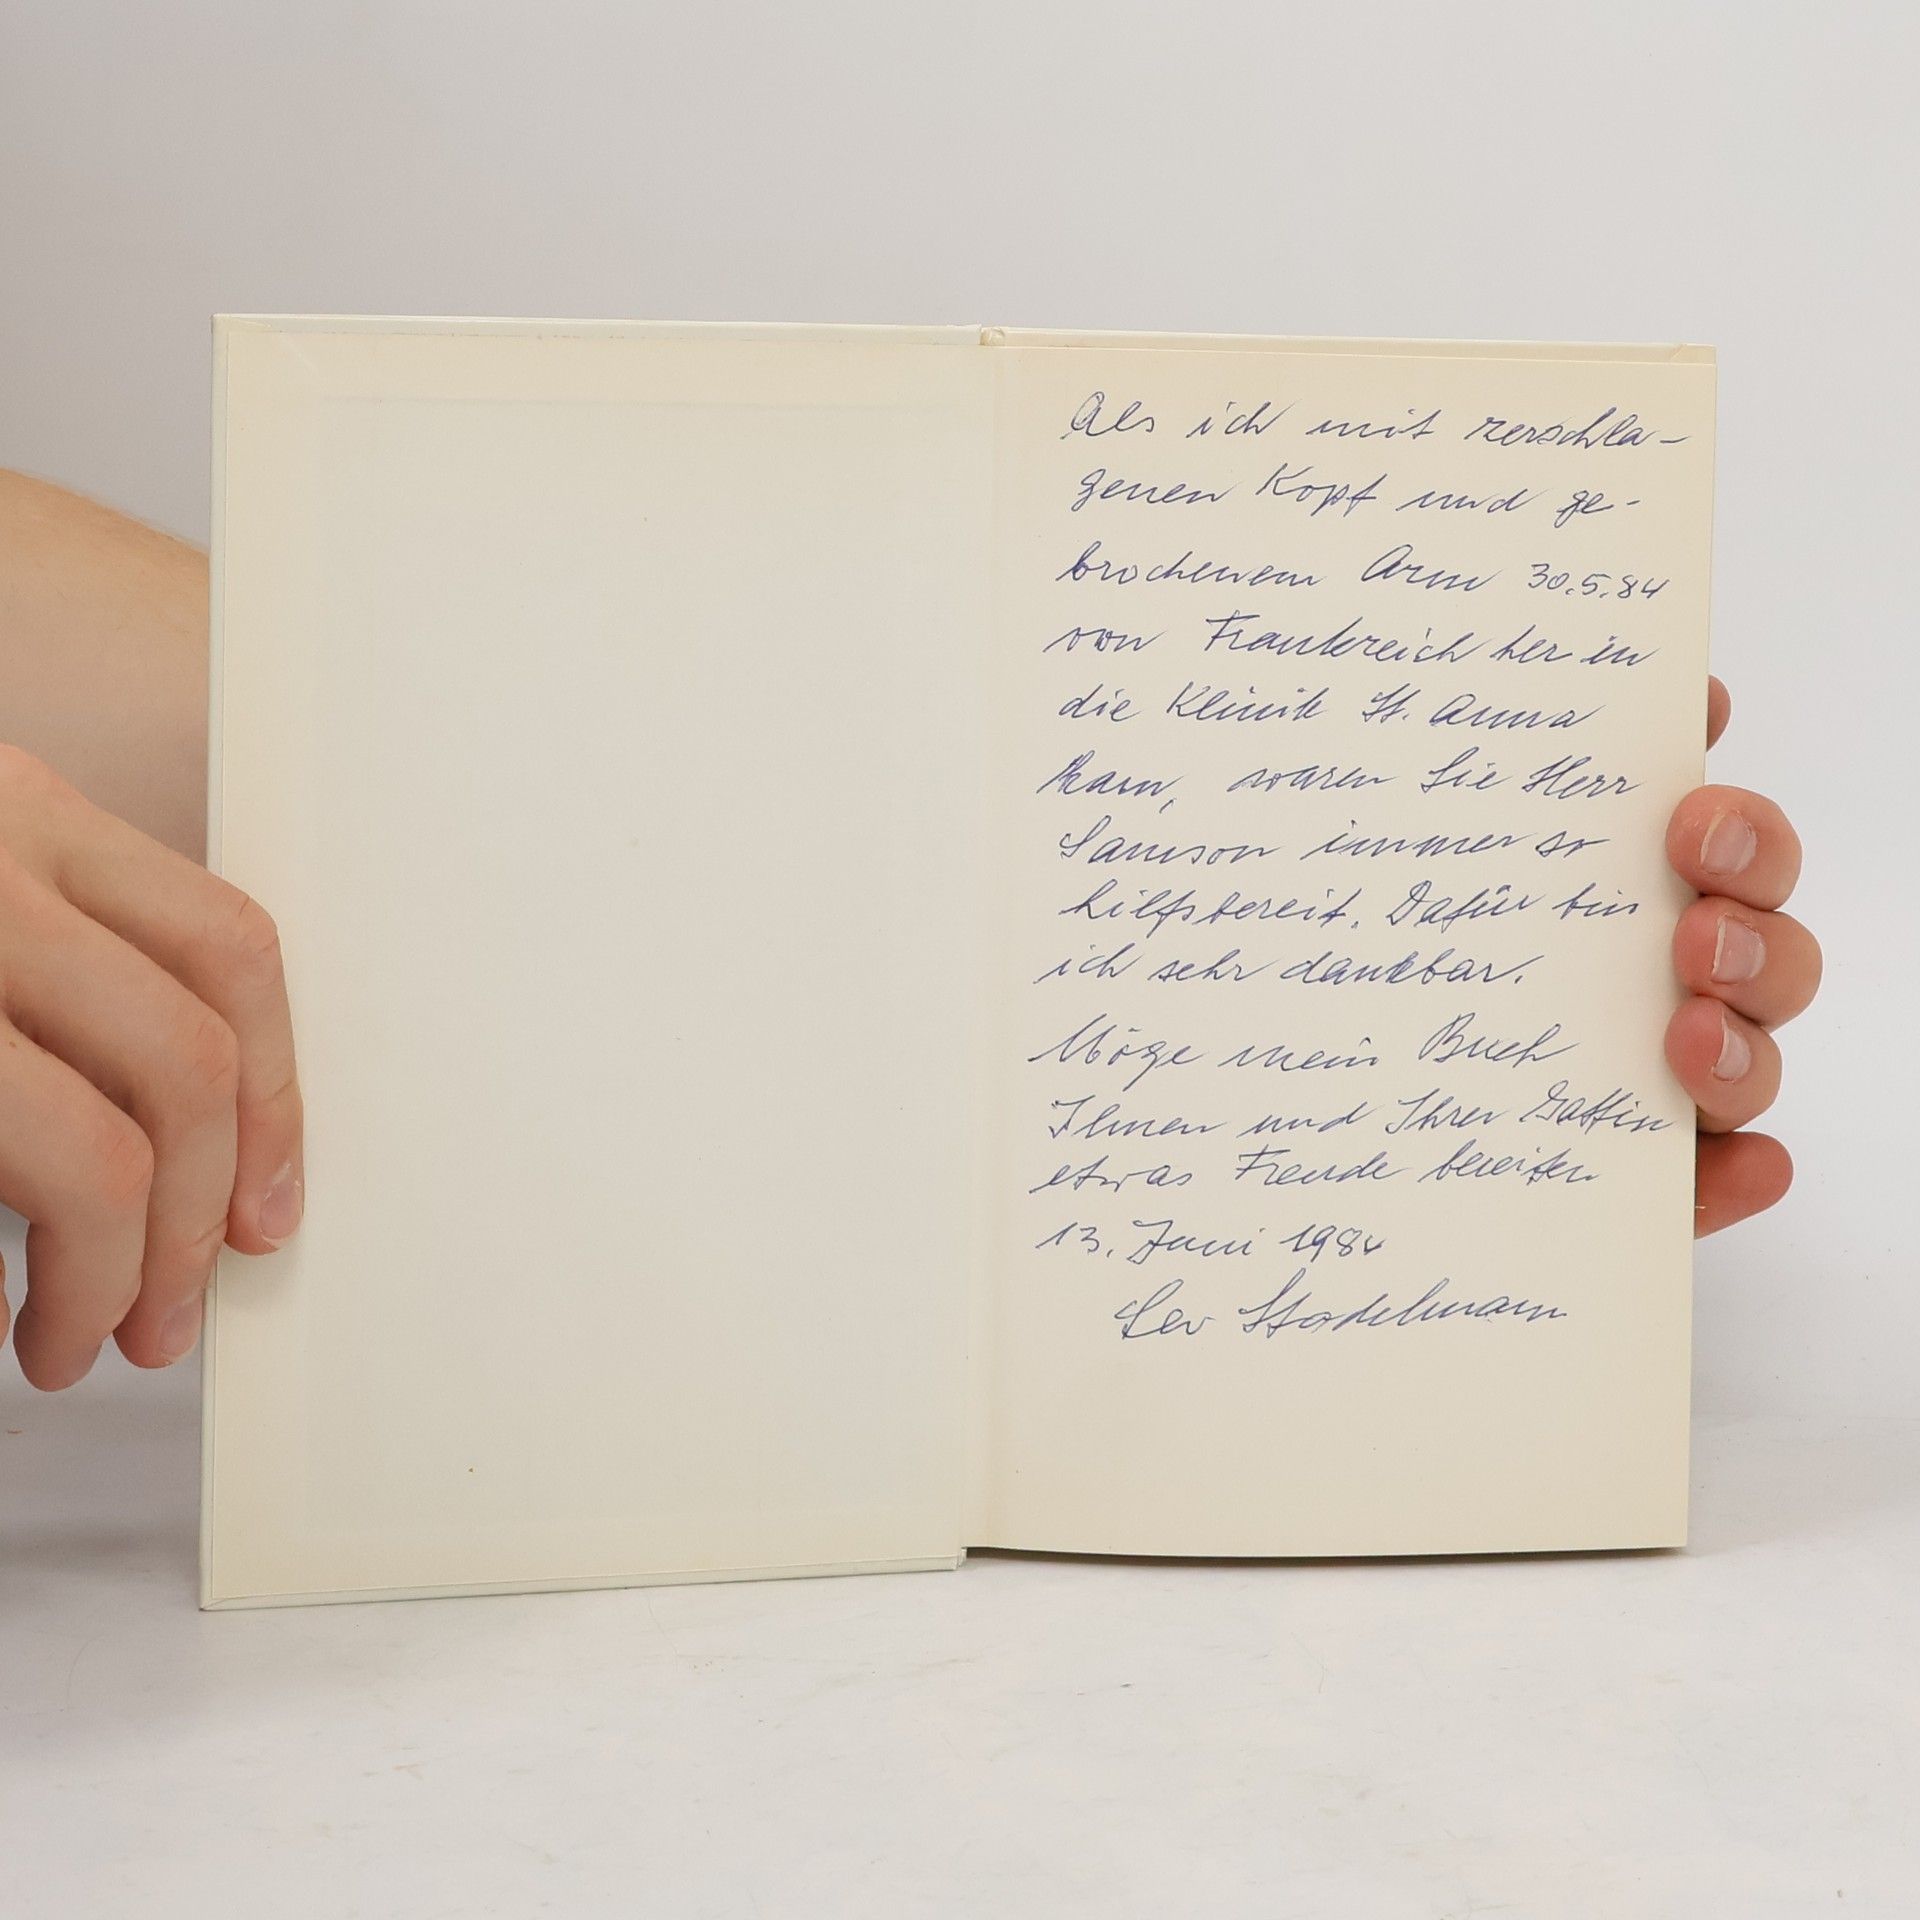 Als ich mit zerschla-
genen Kopf und ge-
brochenem Arm 30.5.84
von Frankreich her in
die Klinik St. Anna
kam, waren Sie Herr
Samson immer so
hilfsbereit. Dafür bin
ich sehr dankbar.
Möge mein Buch
Ihnen und Ihrer Gattin
etwas Freude bereiten
13. Juni 1984
Leo Stadelmann